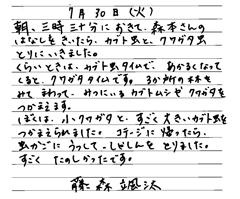 7月30日(火)
朝、三時三十分におきて、森本さんの
はなしをきいたら、カブト虫と、クワガタ虫
とりにいきました。
くらいときは、カブト虫タイムで、あかるくなって
くると、クワガタタイムです。3か所の木を
みて まわって、みつにいるカブトムシやクワガタを
つかまえます。
ぼくは、小クワガタと、すごく大きいカブト虫を
つかまえられました。コテージに帰ったら、
虫かごに うつして、しゃしんを とりました。
すごく たのしかったです。
藤森颯汰